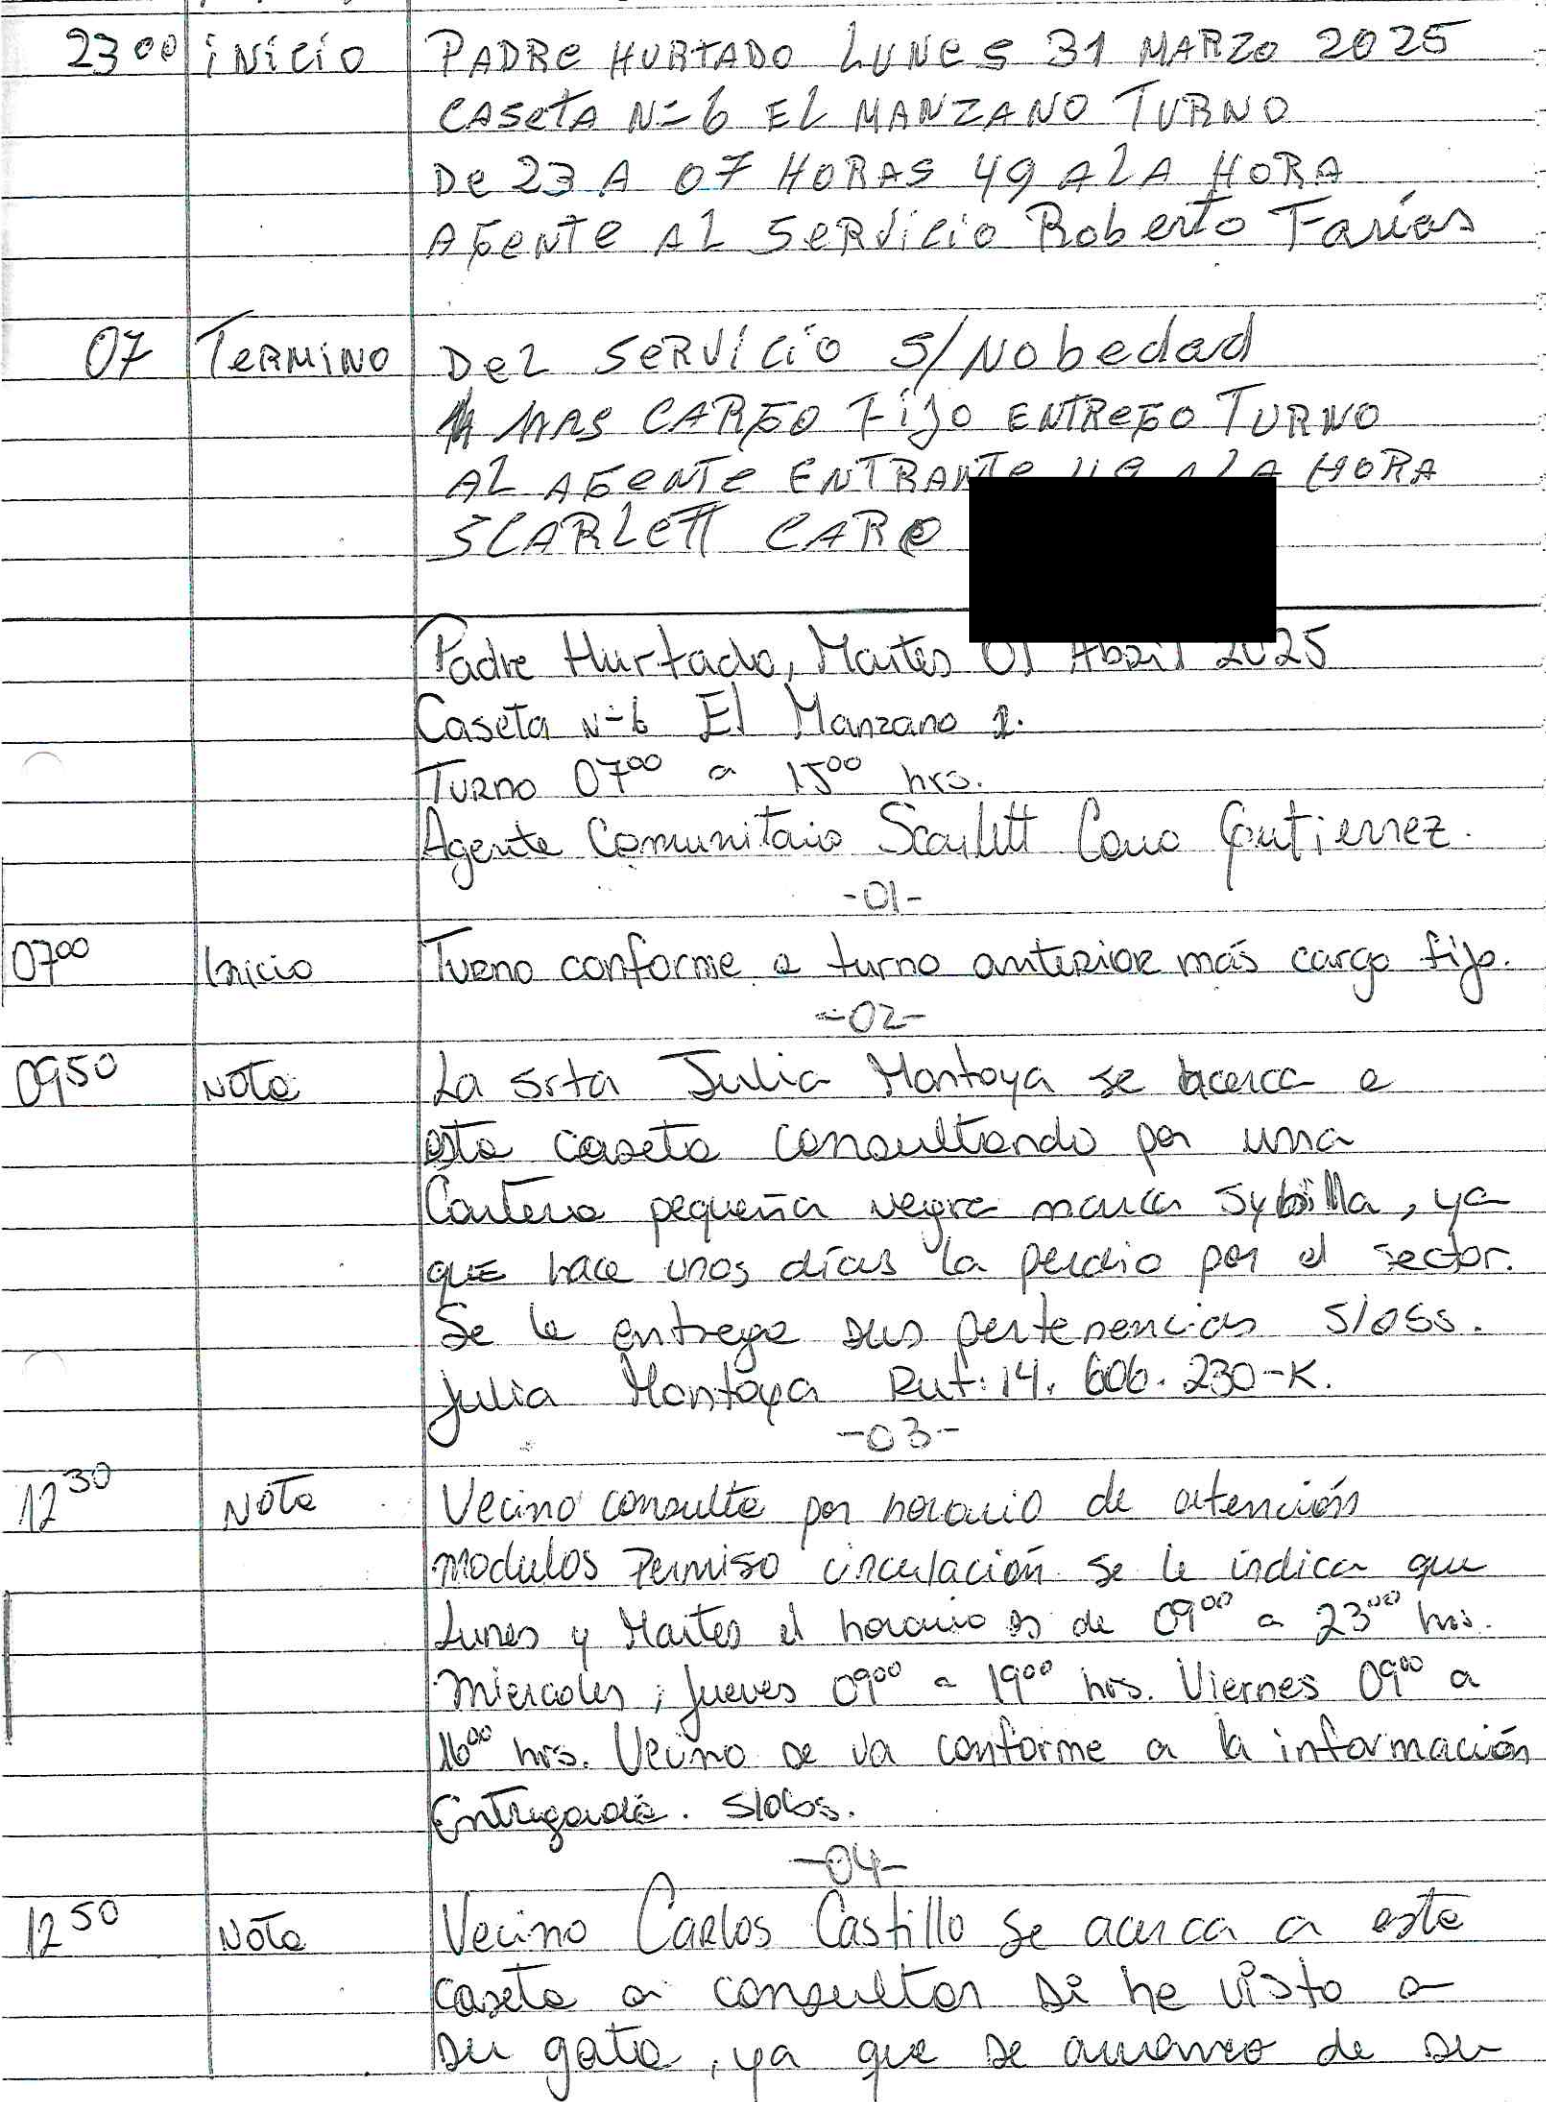 23 00 iNiCiO PADRe HURTADO LUNeS 31 MARZo 2025
CASeTA N=6 EL MANZANO TURNO
De 23 A 07 HORAS 49 A LA HORA
AGeNTe AL SeRViCiO Roberto Farías
07 TeRMiNO DeL SeRViCiO S/Nobedad
MAS CARGO FiJO ENTReGO TURNO
AL AGeNTe ENTRANTe 49 A LA HORA
SCARLeTT CARO
Padre Hurtado, Martes 01 Abril 2025
Caseta N=6 El Manzano 1.
Turno 07 00 a 15 00 hrs.
Agente Comunitario Scarlett Caro Gutierrez.
-01-
07 00 Inicio Turno conforme a turno anterior más cargo fijo.
-02-
09 50 Nota La srta Julia Montoya se acerca a
esta caseta consultando por una
Cartera pequeña negra marca Sybilla, ya
que hace unos días la perdio por el sector.
Se le entrega sus pertenencias s/obs.
Julia Montoya Rut: 14. 606. 230-K.
-03-
12 30 Nota Vecino consulta por horario de atención
modulos Permiso circulación se le indica que
Lunes y Martes el horario es de 09 00 a 23 00 hrs.
Miercoles, Jueves 09 00 a 19 00 hrs. Viernes 09 00 a
16 00 hrs. Vecino se va conforme a la información
Entregada. s/obs.
-04-
12 50 Nota Vecino Carlos Castillo se acerca a esta
caseta a consultar si he visto a
su gata, ya que se arranco de su